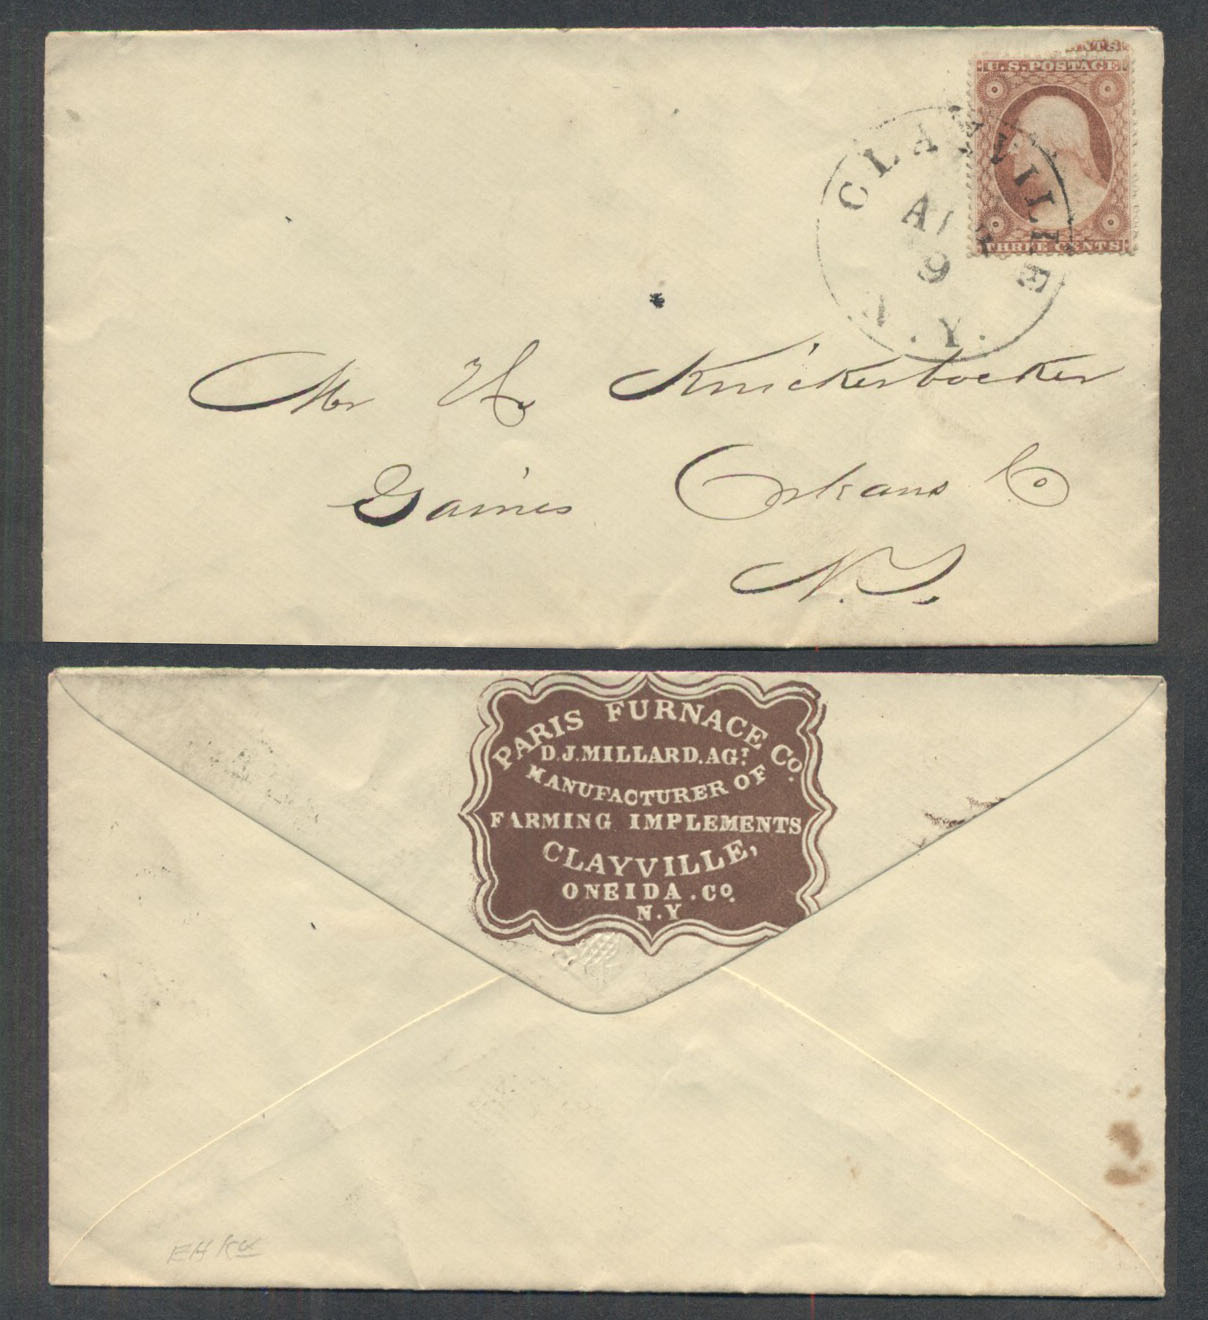 NTS
U.S. POSTAGE
THREE CENTS
CLAYVILLE
9
N.Y.
Mr H. Knickerbocker
Gaines Orleans Co
N.Y.
PARIS FURNACE Co.
D.J. MILLARD. AGT.
MANUFACTURER OF
FARMING IMPLEMENTS
CLAYVILLE,
ONEIDA. Co.
N.Y